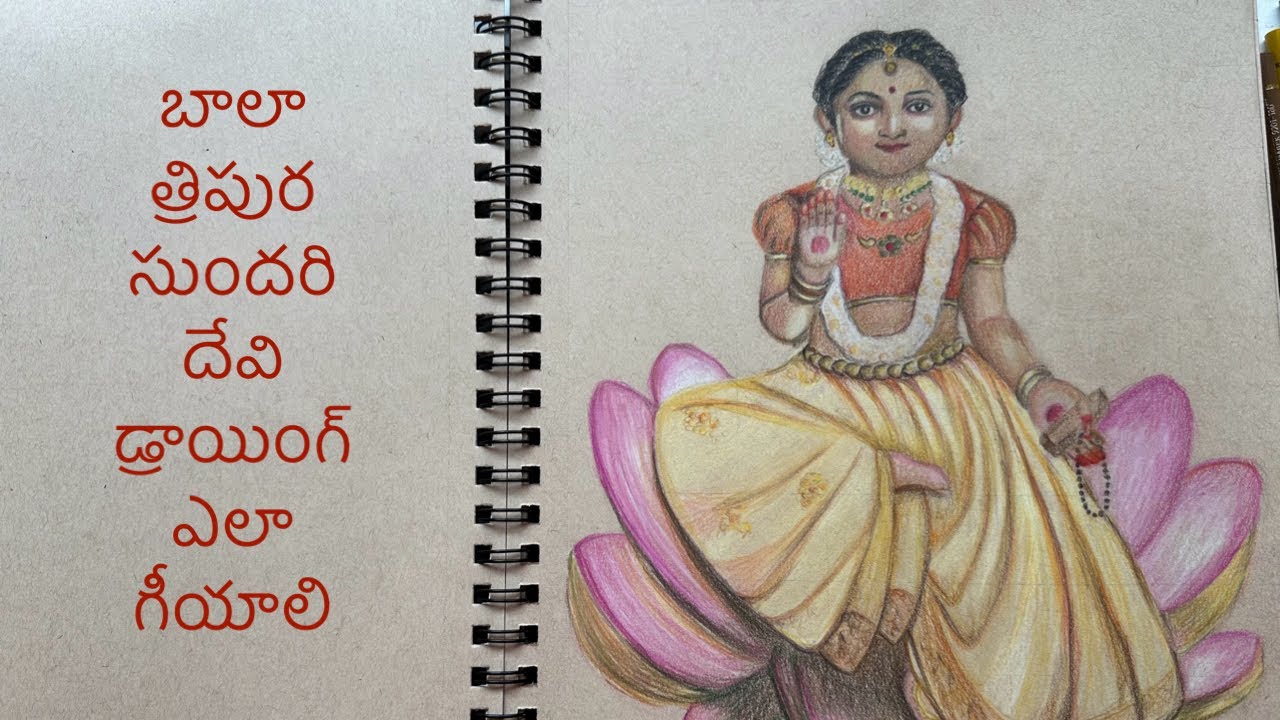 బాలా
త్రిపుర
సుందరి
దేవి
డ్రాయింగ్
ఎలా
గీయాలి